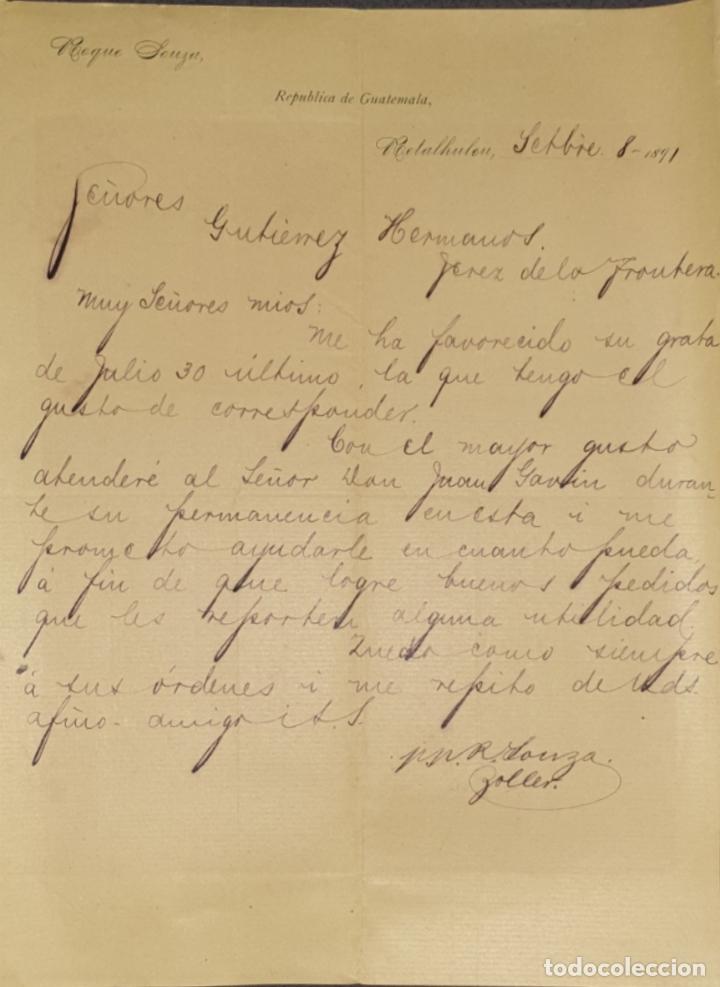 Roque Souza,
Republica de Guatemala,
Retalhuleu, Setbre. 8-1891
Señores
Gutiérrez Hermanos.
Jerez de la Frontera.
Muy Señores mios:
Me ha favorecido su grata
de Julio 30 último, la que tengo el
gusto de corresponder.
Con el mayor gusto
atenderé al Señor Don Juan Gavin duran-
te su permanencia en esta i me
prometo ayudarle en cuanto pueda,
á fin de que logre buenos pedidos
que les reporten alguna utilidad.
Quedo como siempre
á sus órdenes i me repito de Uds.
afmo- amigo i S.S.
pp. R. Souza.
Zoller.
todocoleccion
todocoleccion.net